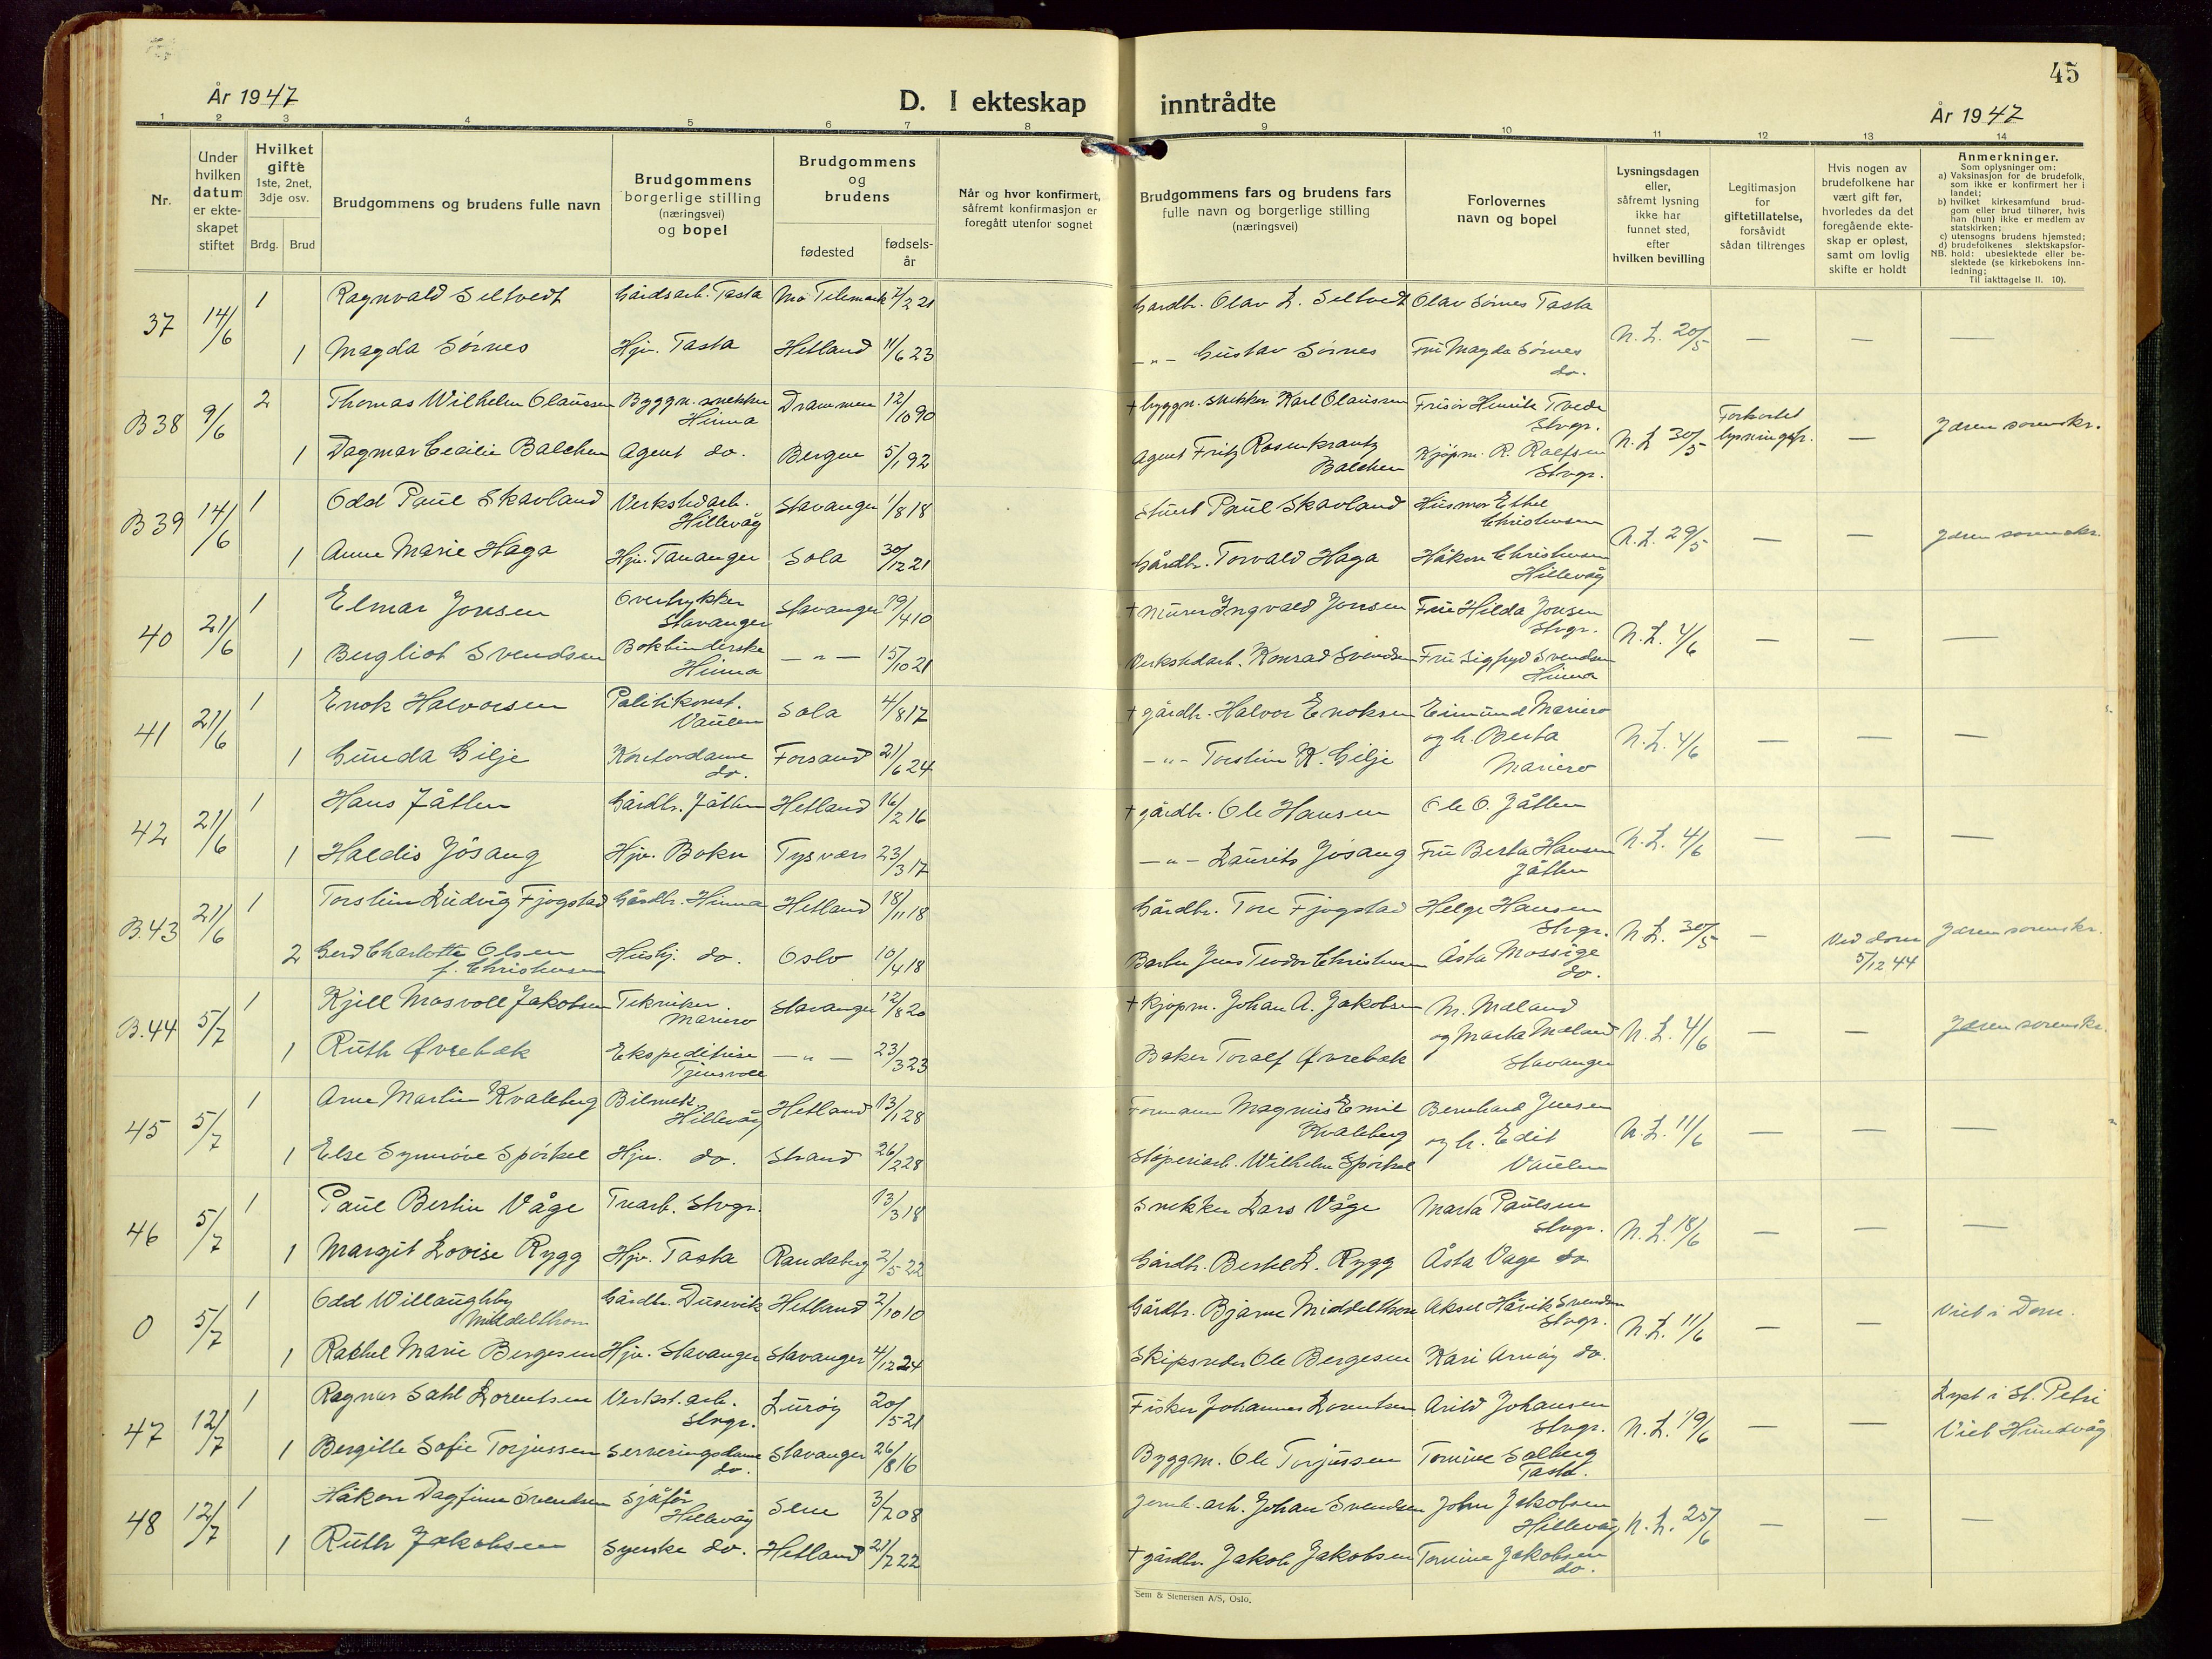 45
År 1947
D. I ekteskap inntrådte
År 1947
1 2 3 4 5 6 7 8 9 10 11 12 13 14
Nr.
Under hvilken datum er ekteskapet stiftet
Hvilket gifte 1ste, 2net, 3dje osv.
Brdg. Brud
Brudgommens og brudens fulle navn
Brudgommens borgerlige stilling (næringsvei) og bopel
Brudgommens og brudens
fødested
fødselsår
Når og hvor konfirmert, såfremt konfirmasjon er foregått utenfor sognet
Brudgommens fars og brudens fars fulle navn og borgerlige stilling (næringsvei)
Forlovernes navn og bopel
Lysningsdagen eller, såfremt lysning ikke har funnet sted, efter hvilken bevilling
Legitimasjon for giftetillatelse, forsåvidt sådan tiltrenges
Hvis nogen av brudefolkene har vært gift før, hvorledes da det foregående ekteskap er opløst, samt om lovlig skifte er holdt
Anmerkninger.
Som oplysninger om:
a) Vaksinasjon for de brudefolk, som ikke er konfirmert her i landet;
b) hvilket kirkesamfund brudgom eller brud tilhører, hvis han (hun) ikke er medlem av statskirken;
c) utensogns brudens hjemsted;
d) brudefolkenes slektskapsforhold: ubeslektede eller beslektede (se kirkebokens innledning;
NB. Til iakttagelse II. 10).
37 14/6 1 Ragnvald Seltvedt Gårdsarb. Tasta Mo Telemark 2/2 21 Gardbr. Olav L. Seltvedt Olav Sørnes Tasta N. L. 20/5 — — —
1 Magda Sørnes Hjv. Tasta Hetland 11/6 23 —"— Gustav Sørnes Fru Magda Sørnes do.
B 38 9/6 2 Thomas Wilhelm Olaussen Byggn. snekker Hinna Drammen 12/10 90 + byggn. snekker Karl Olaussen Frisør Henrik Tvede Stvgr. N. L. 30/5 Forkortet lysningsfr. — Jæren sorenskr.
1 Dagmar Cecilie Balchen Agent do. Bergen 5/1 92 Agent Fritz Rosenkrantz Balchen Kjøpm. R. Rolfsen Stvgr.
B 39 14/6 1 Odd Paul Skavland Verkstedarb. Hillevåg Stavanger 1/8 18 Stuert Paul Skavland Husmor Ethel Christensen N. L. 29/5 — — Jæren sorenskr.
1 Anne Marie Haga Hjv. Tananger Sola 30/12 21 Gårdbr. Torvald Haga Håkon Christensen Hillevåg
40 21/6 1 Elmar Jonsen Overtrykker Stavanger Stavanger 19/4 10 + Murer Ingvald Jonsen Fru Hilda Jonsen Stvgr. N. L. 4/6 — — —
1 Bergliot Svendsen Bokbinderske Hinna —"— 15/10 21 Verkstedarb. Konrad Svendsen Fru Sigfryd Svendsen Hinna
41 21/6 1 Enok Halvorsen Politikonst. Vaulen Sola 4/8 17 + gårdbr. Halvor Enoksen Eimund Mariero N. L. 4/6 — — —
1 Gunda Gilje Kontordame do. Forsand 21/6 24 —"— Torstein K. Gilje og h. Berta Mariero
42 21/6 1 Hans Jåtten Gårdbr. Jåtten Hetland 16/2 16 + gårdbr. Ole Hansen Ole O. Jåtten N. L. 4/6 — — —
1 Haldis Jøsang Hjv. Bokn Tysvær 23/3 17 —"— Laurits Jøsang Fru Berta Hansen Jåtten
B. 43 21/6 1 Torstein Ludvig Fjogstad Gårdbr. Hinna Hetland 18/11 18 Gårdbr. Tore Fjogstad Helge Hansen Stvgr. N. L. 30/5 — Ved dom 5/12 44 Jæren sorenskr.
2 Gerd Charlotte Olsen f. Christensen Hushj. do. Oslo 10/4 18 Barber Jens Teodor Christensen Åsta Mossige do.
B. 44 5/7 1 Kjell Mosvoll Jakobsen Tekniker Mariero Stavanger 12/8 20 + Kjøpm. Johan A. Jakobsen M. Mæland N. L. 4/6 — — Jæren sorenskr.
1 Ruth Øvrebæk Ekspeditrise Tjensvoll —"— 23/3 23 Baker Toralf Øvrebæk og Marta Mæland Stavanger
45 5/7 1 Arne Martin Kvaleberg Bilmek. Hillevåg Hetland 13/1 28 Formann Magnus Emil Kvaleberg Bernhard Jensen N. L. 11/6 — — —
1 Else Synnøve Spörkel Hjv. do. Strand 26/2 28 Støperiarb. Wilhelm Spörkel og h. Edit Vaulen
46 5/7 1 Paul Bertin Våge Trearb. Stvgr. 13/3 18 Snekker Lars Våge Marta Paulsen Stvgr. N. L. 18/6 — — —
1 Margit Lovise Rygg Hjv. Tasta Randaberg 2/5 22 Gårdbr. Bertel L. Rygg Åsta Våge do.
0 5/7 1 Odd Willaughby Middelthon Gårdbr. Dusevik Hetland 2/10 10 Gårdbr. Bjarne Middelthon Aksel Hårik Svendsen Stvgr. N. L. 11/6 — — Viet i Dom.
1 Rachel Marie Bergesen Hjv. Stavanger Stavanger 4/12 24 Skipsreder Ole Bergesen Kari Arnøy do.
47 12/7 1 Ragnar Dahl Lorentsen Verkst. arb. Stvgr. Lurøy 20/5 21 Fisker Johannes Lorentsen Arild Johansen Stvgr. N. L. 19/6 — — Lyst i St. Petri
1 Bergitte Sofie Torjussen Serveringsdame do. Stavanger 26/8 16 Byggm. Ole Torjussen Tomine Solberg Tasta. Viet Hundvåg
48 12/7 1 Håkon Dagfinn Svendsen Sjåfør Hillevåg Sem 3/7 08 Jernb. arb. Johan Svendsen John Jakobsen Hillevåg N. L. 25/6 — — —
1 Ruth Jakobsen Syerske do. Hetland 21/7 22 + gårdbr. Jakob Jakobsen Tomine Jakobsen do.
Sem & Stenersen A/S, Oslo.